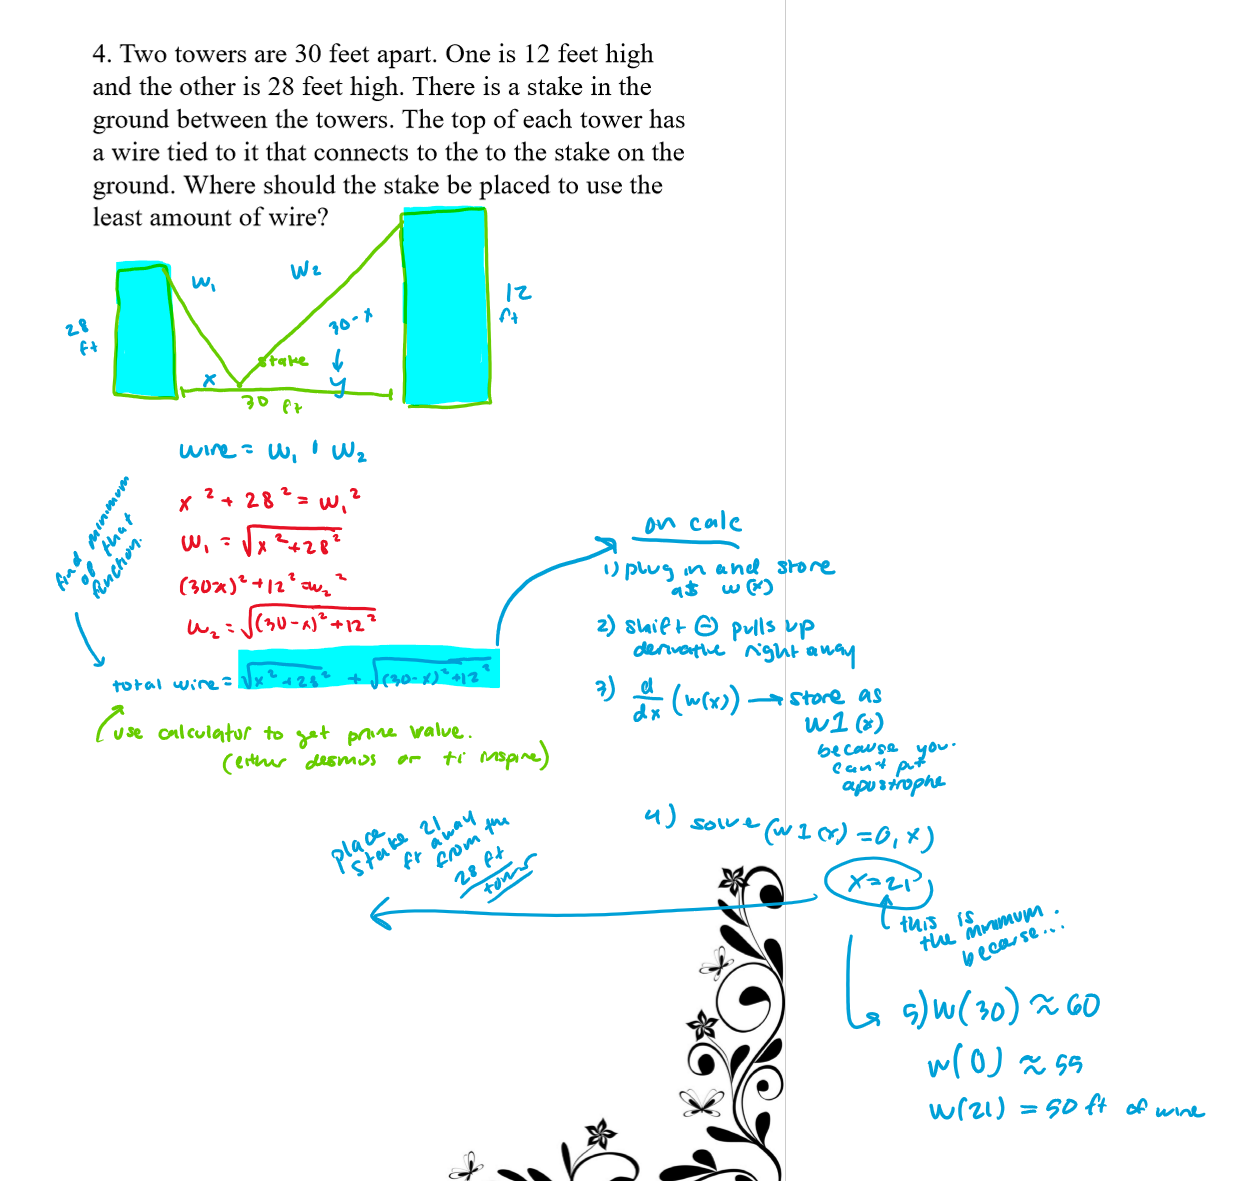 4. Two towers are 30 feet apart. One is 12 feet high
and the other is 28 feet high. There is a stake in the
ground between the towers. The top of each tower has
a wire tied to it that connects to the to the stake on the
ground. Where should the stake be placed to use the
least amount of wire?
W₁
W₂
28
ft
12
ft
30-x
stake
x
y
30 ft
wire = W₁ + W₂
x² + 28² = W₁²
W₁ = √x²+28²
(30-x)² + 12² = W₂²
W₂ = √(30-x)² + 12²
find minimum
of that
function.
total wire = √x² + 28² + √(30-x)² + 12²
use calculator to get prime value.
(either desmos or ti inspire)
on calc
1) plug in and store
as w(x)
2) shift ⊖ pulls up
derivative right away
3) d/dx (w(x)) → store as
w1(x)
because you
can't put
apostrophe
4) solve(w1(x)=0, x)
x=21
this is
the minimum
because...
place
stake 21
ft away
from the
28 ft
tower
5) w(30) ≈ 60
w(0) ≈ 55
w(21) = 50 ft of wire